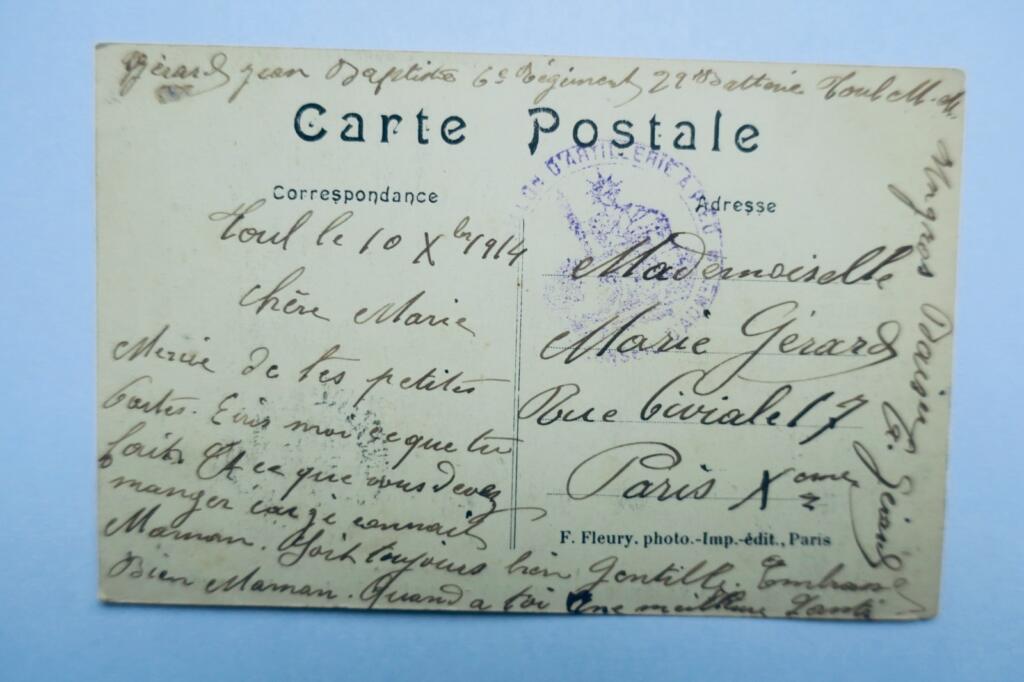 Gérard Jean Baptiste 6e Régiment 29 Batterie Toul M. M.
Carte Postale
Correspondance
Toul le 10 Xbre 1914
Chère Marie
Mercie de tes petites
Cartes. Ecris moi ce que tu
fait. Et ce que vous devez
manger car je connait
Maman. Soit toujours bien Gentille. Embrasse
Bien Maman. Quand a toi une meilleure Santé
Adresse
D'ARTILLERIE A PIED
Mademoiselle
Marie Gérard
Rue Civiale 17
Paris Xeme
F. Fleury. photo.-Imp.-édit., Paris
Baiser G. Gérard